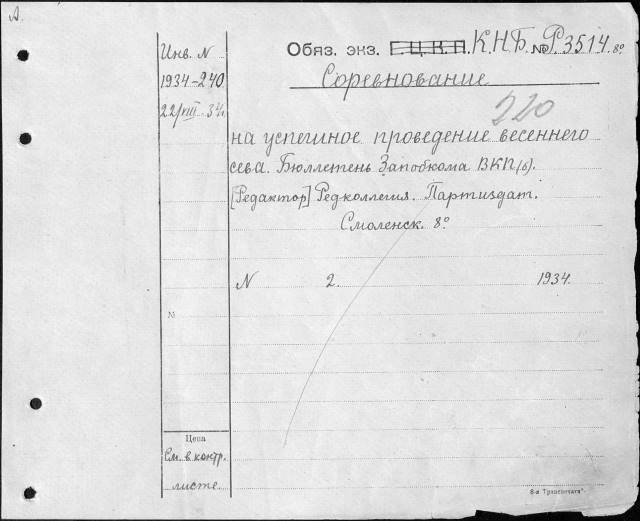 А.
Инв. N
1934-240
22/VIII 34.
Обяз. экз. Г.Ц.К.П. К.Н.Б. № Р.3514. 8º
Соревнование
220
на успешное проведение весеннего
сева. Бюллетень Запобкома ВКП(б).
[Редактор] Редколлегия. Партиздат.
Смоленск. 8º
N 2. 1934.
№
Цена
См. в контр.
листе.